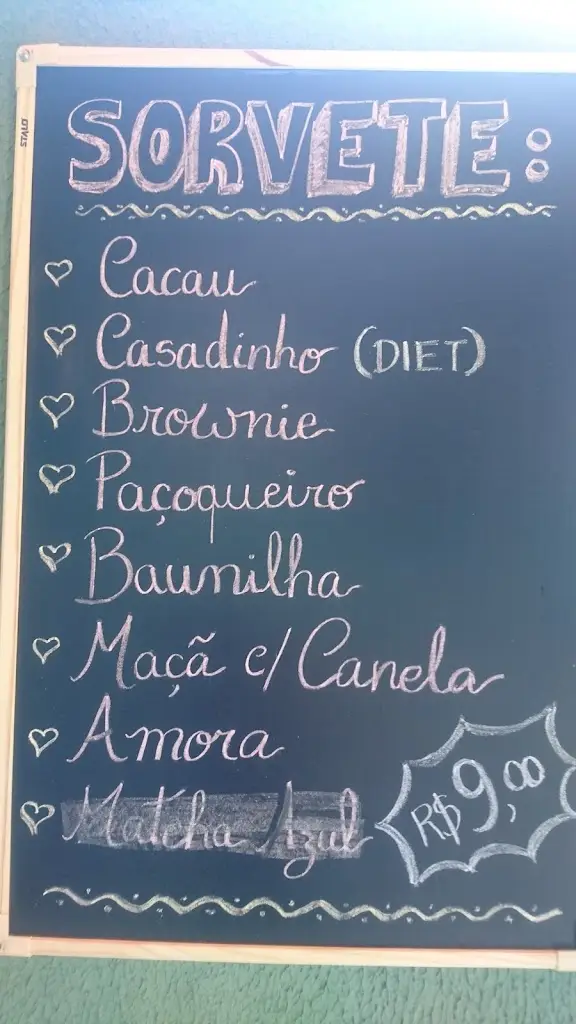 STALO
SORVETE:
Cacau
Casadinho (DIET)
Brownie
Paçoqueiro
Baunilha
Maçã c/ Canela
Amora
Matcha Azul
R$ 9,00